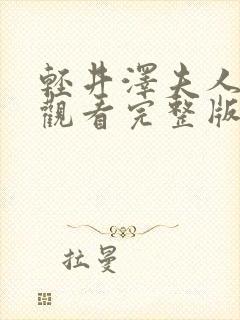 輕井澤夫人
觀看完整版
拉曼